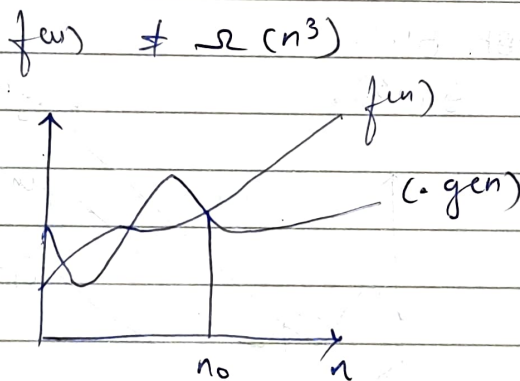 f(n) ≠ Ω(n³)
f(n)
c·g(n)
n₀ n